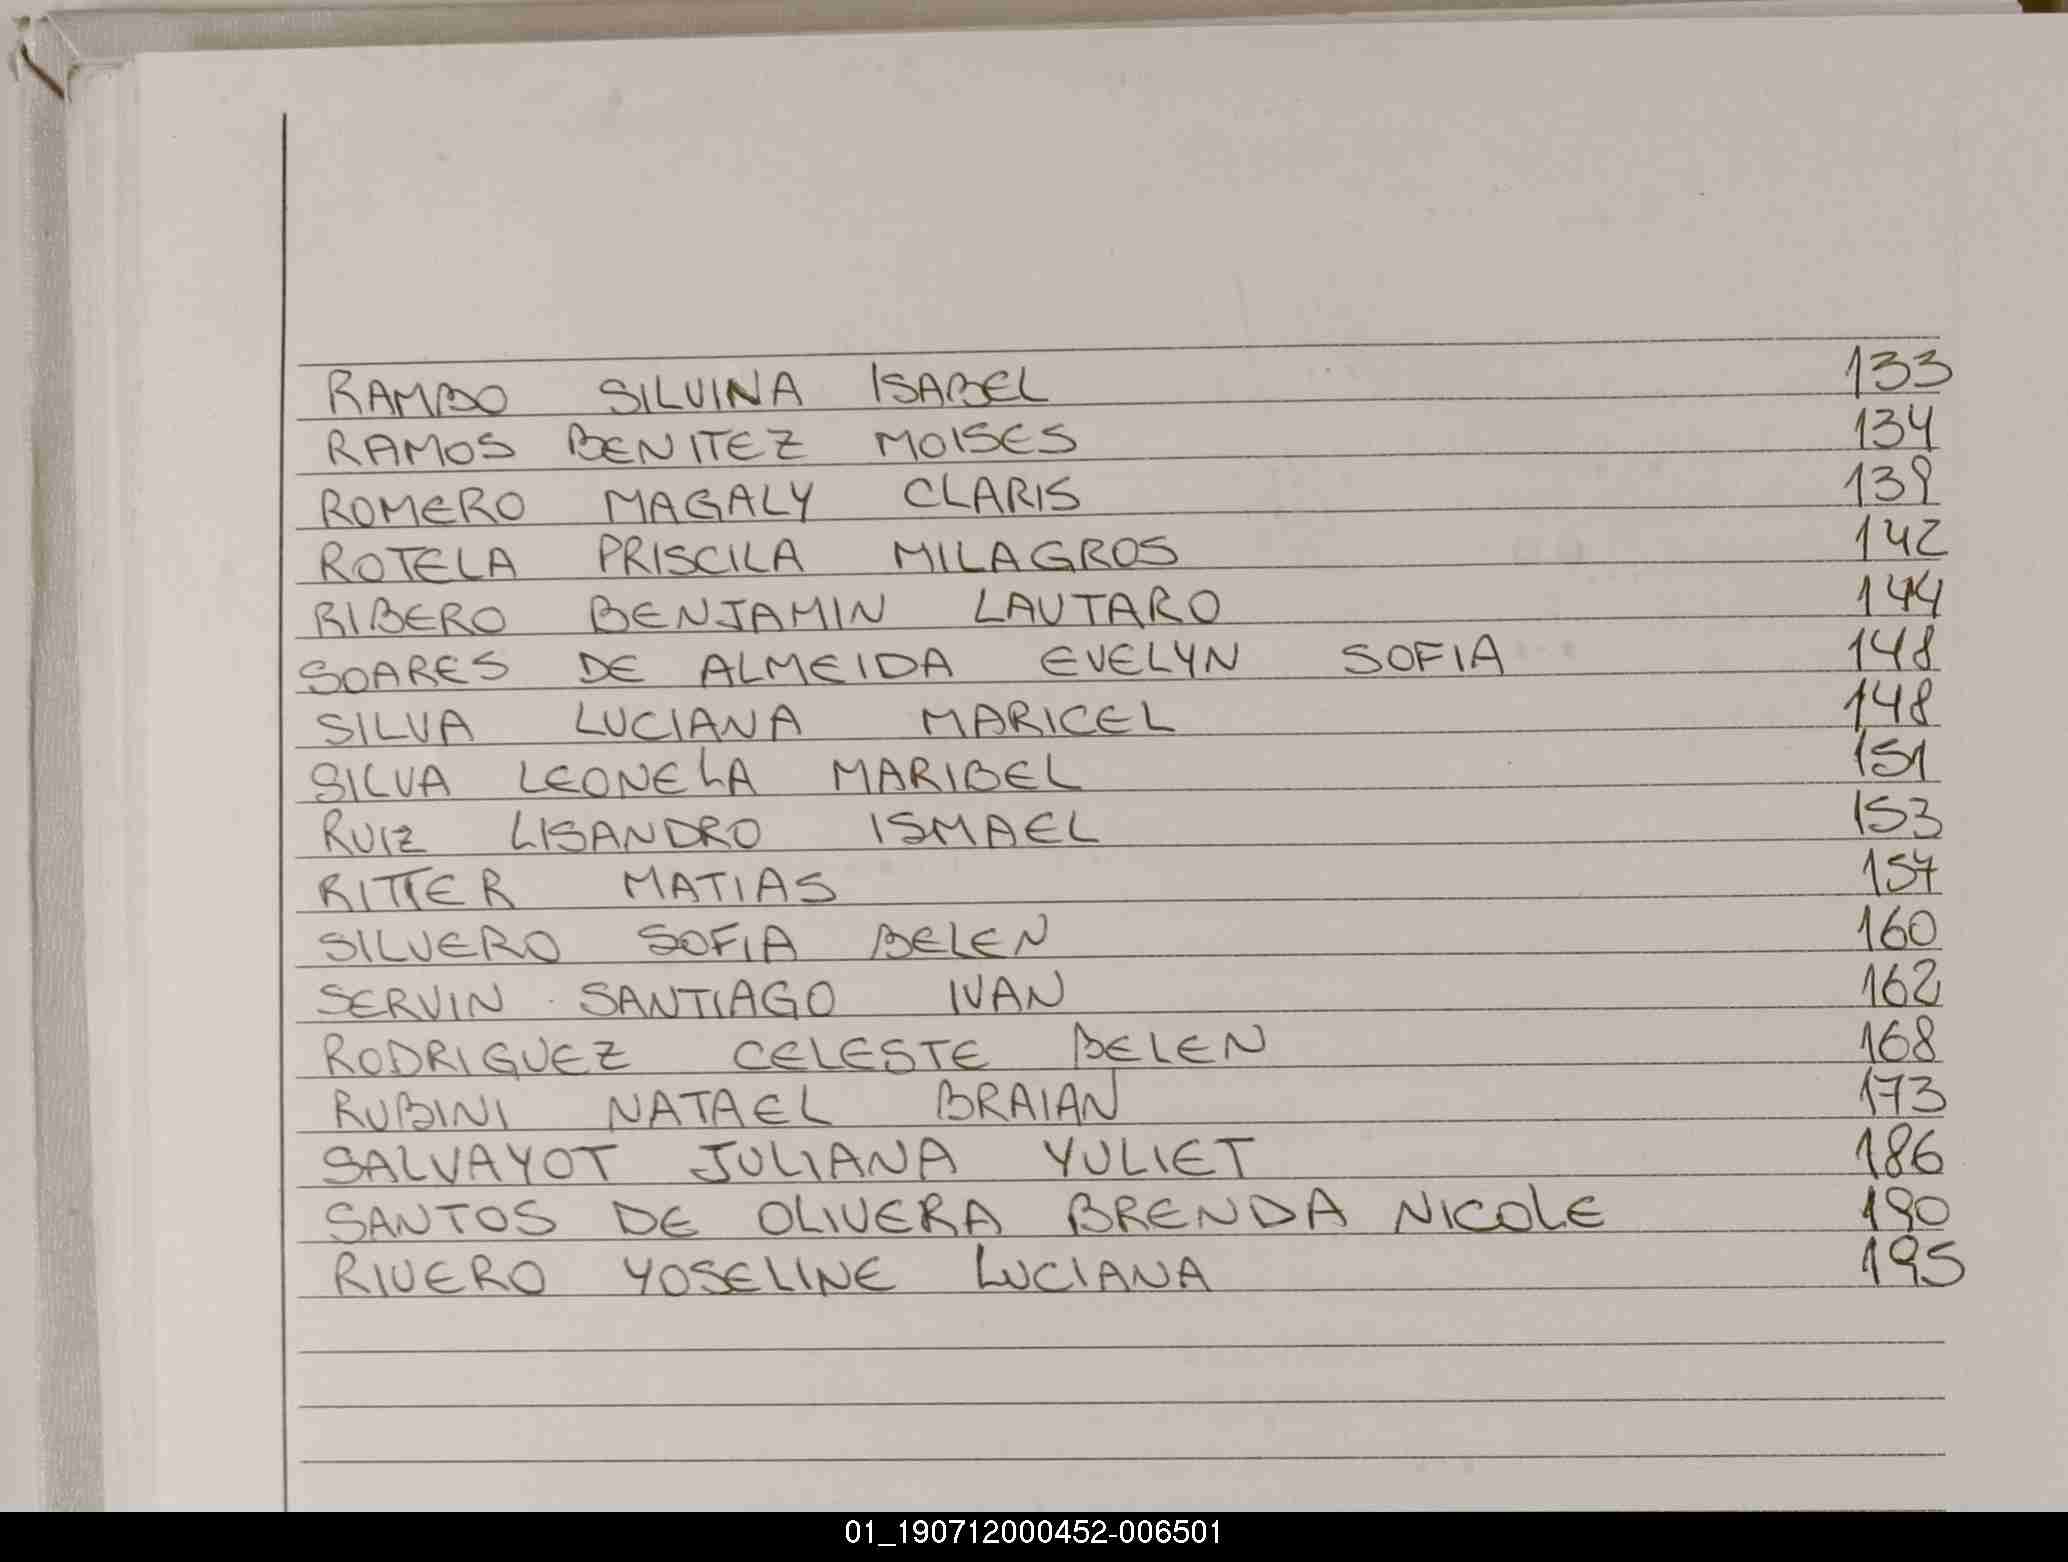 RAMBO SILVINA ISABEL 133
RAMOS BENITEZ MOISES 134
ROMERO MAGALY CLARIS 139
ROTELA PRISCILA MILAGROS 142
RIBERO BENJAMIN LAUTARO 144
SOARES DE ALMEIDA EVELYN SOFIA 148
SILVA LUCIANA MARICEL 148
SILVA LEONELA MARIBEL 151
RUIZ LISANDRO ISMAEL 153
RITTER MATIAS 157
SILVERO SOFIA BELEN 160
SERVIN SANTIAGO IVAN 162
RODRIGUEZ CELESTE BELEN 168
RUBINI NATAEL BRAIAN 173
SALVAYOT JULIANA YULIET 186
SANTOS DE OLIVERA BRENDA NICOLE 190
RIVERO YOSELINE LUCIANA 195
01_190712000452-006501